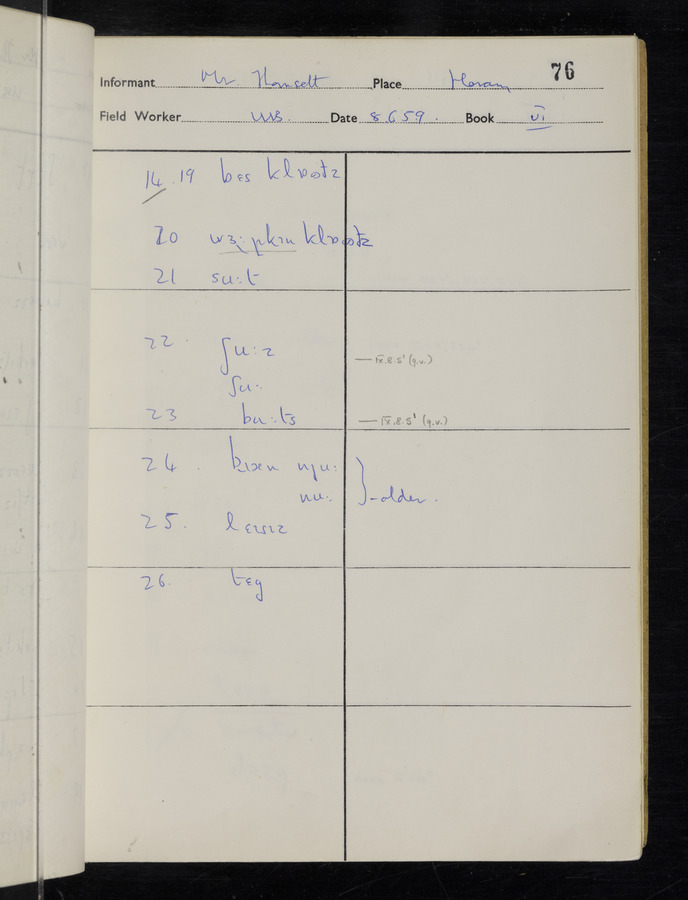 76
Informant Mr Hansett Place Horam
Field Worker Date 8 6 59. Book VI
14.19 bɛs klɒətz
20 wɜ:pkɪn klɒətz
21 su:t
22. ʃu:z — IX.8.5' (q.v.)
ʃu:
23 bu:ts — IX.8.5' (q.v.)
24. nju:
nu: } - older.
25. lɛɪsɪz
26. tɛg